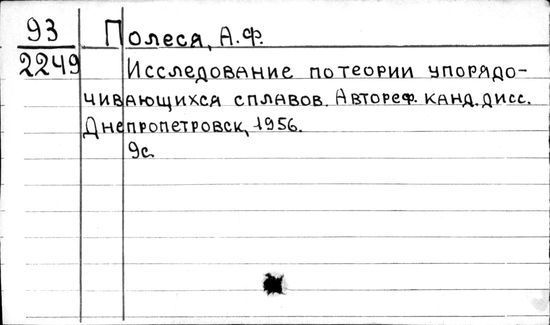 93 Полеся, А.Ф.
2249 Исследование по теории упорядо-
чивающихся сплавов. Автореф. канд. дисс.
Днепропетровск, 1956.
9с.